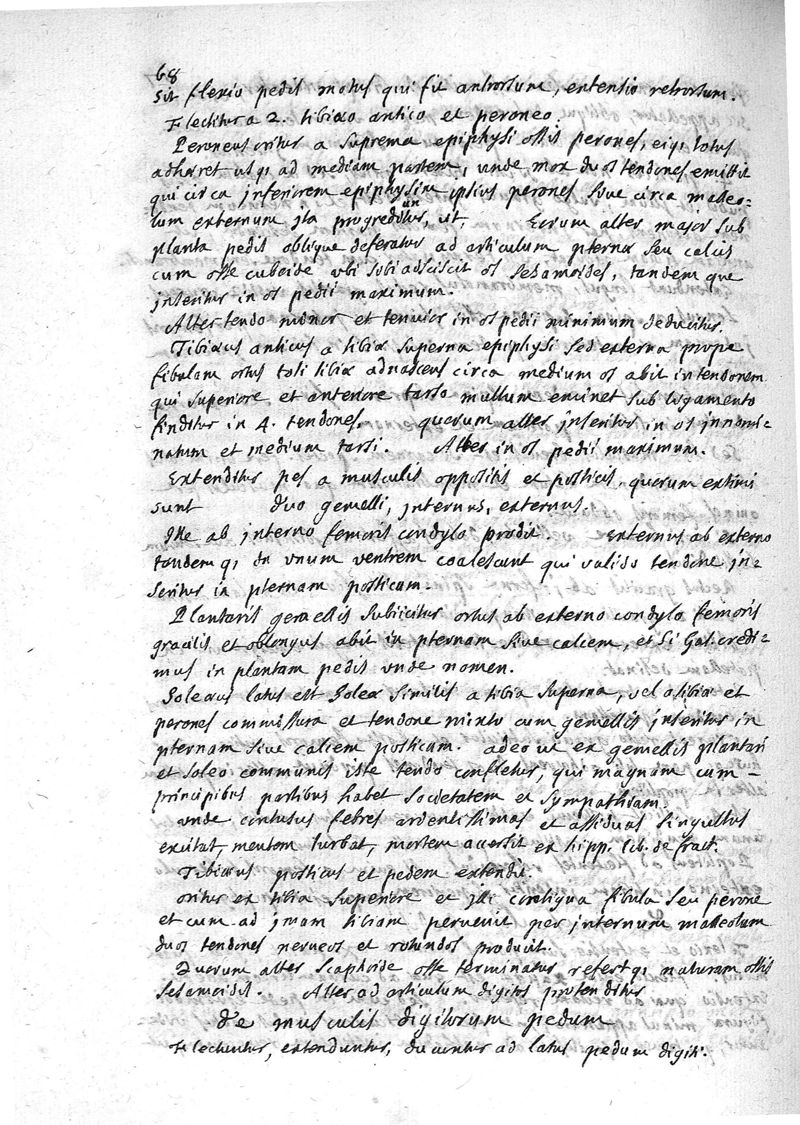 68
sit flexio pedis motus qui fit antrorsum, extensio retrorsum.
Flectitur a 2. tibiæo antico et peroneo.
Peroneus oritur a suprema epiphysi ossis perones, eiq; totus
adhæret usq; ad mediam partem, unde mox duos tendones emittit
qui circa inferiorem epiphysim ipsius perones sive circa malleo=
lum externum ita progrediun tur, ut, Eorum alter major sub
planta pedis oblique deferatur ad articulum pternæ seu calcis
cum osse cuboide ubi sibi adsciscit os sesamoides, tandem que
inseritur in os pedii maximum.
Alter tendo minor et tenuior in os pedii minimum deducitur.
Tibiæus anticus a tibiæ superna epiphysi sed externa prope
fibulam ortus toti tibiæ adnascens circa medium os abit in tendonem
qui superiore et anteriore tarso multum eminet sub ligamento
finditur in 4. tendones. quorum alter inseritur in os innomi=
natum et medium tarsi. Alter in os pedii maximum.
Extenditur pes a musculis oppositis et posticis. quorum extimi
sunt duo gemelli, internus, externus.
Ille ab interno femoris condylo prodit. externus ab externo
tandem q; in unum ventrem coalescunt qui valido tendine in=
seritur in pternam posticam.
Plantaris gemellis subiicitur ortus ab externo condylo femoris
gracilis et oblongus abit in pternam sive calcem, et si Gal. credi=
mus in plantam pedis unde nomen.
Soleaus latus est soleæ similis a tibia superna, vel a tibiæ et
perones commissura et tendone mixto cum gemellis inseritur in
pternam sive calcem posticam. adeo ut ex gemellis plantari
et soleo communis iste tendo confletur, qui magnam cum -
principibus partibus habet societatem et sympathiam.
unde contusus febres ardentissimas et assiduas singultus
excitat, mentem turbat, mortem accersit ex hipp. lib. de fract.
Tibiæus posticus et pedem extendit.
oritur ex tibia superiore et illi contigua fibula seu perone
et cum ad imam tibiam pervenit per internum malleolum
duos tendones nerveos et rotundos producit.
Quorum alter scaphoide osse terminatur refert q; naturam ossis
sesamoidis. Alter ad articulum digitos protenditur
de musculis digitorum pedum
Flectuntur, extenduntur, ducuntur ad latus pedum digiti.